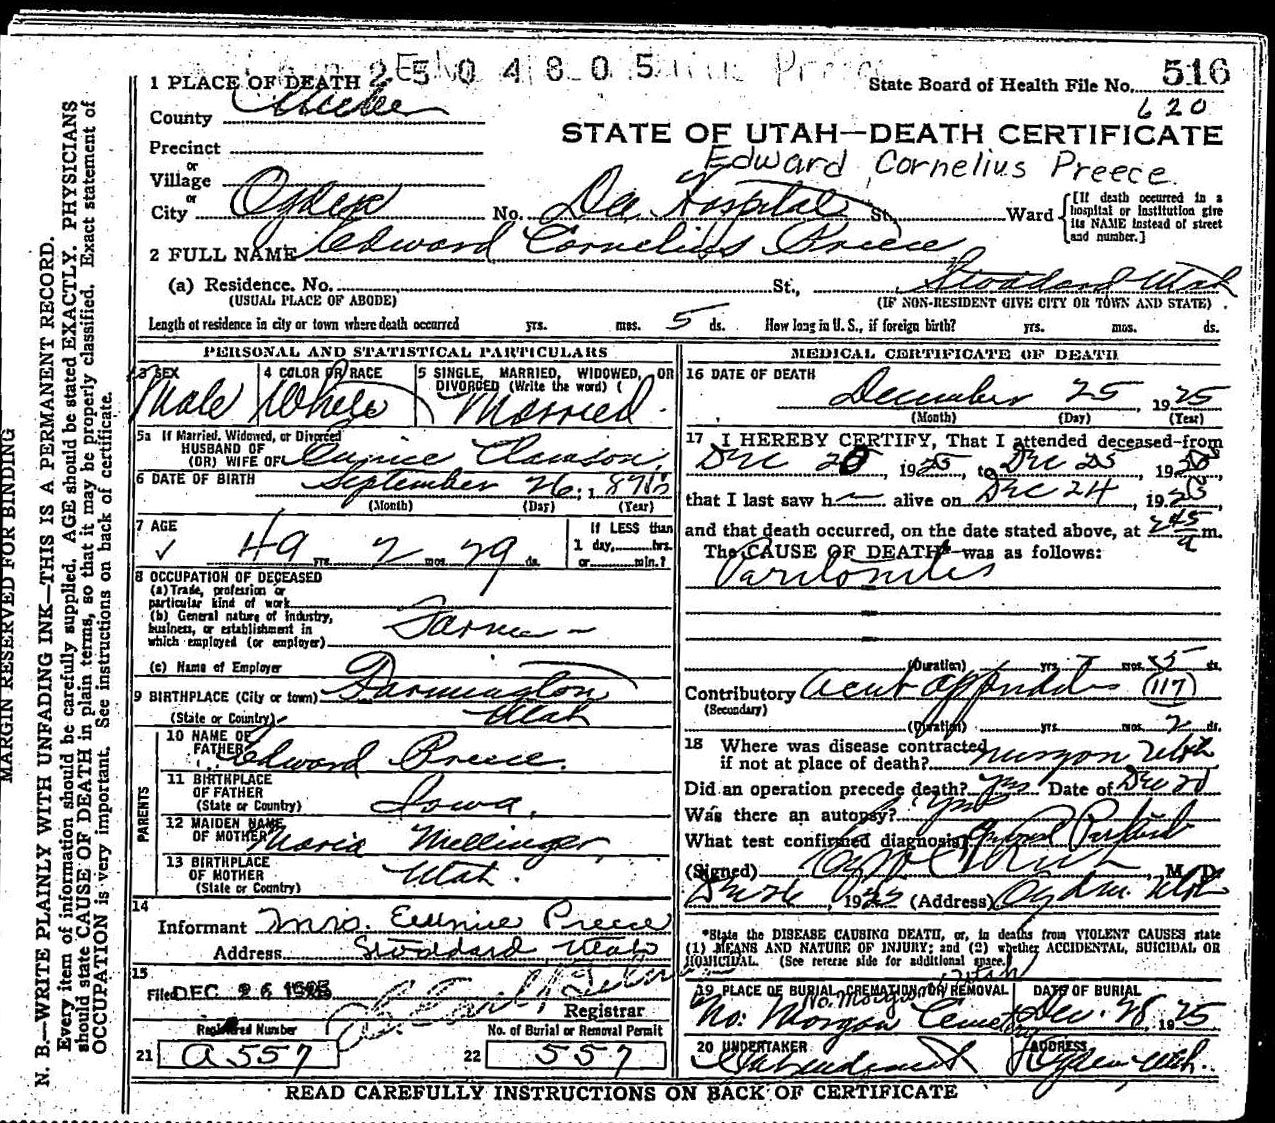 2504805
1 PLACE OF DEATH
State Board of Health File No. 516
620
County
STATE OF UTAH—DEATH CERTIFICATE
Precinct
Edward Cornelius Preece
or
Village
or
City Ogden No. Dee Hospital St. Ward
[If death occurred in a hospital or institution give its NAME instead of street and number.]
2 FULL NAME Edward Cornelius Preece
(a) Residence. No. St., Stoddard Utah
(USUAL PLACE OF ABODE) (IF NON-RESIDENT GIVE CITY OR TOWN AND STATE)
Length of residence in city or town where death occurred yrs. mos. 5 ds. How long in U. S., if foreign birth? yrs. mos. ds.
PERSONAL AND STATISTICAL PARTICULARS
3 SEX 4 COLOR OR RACE 5 SINGLE, MARRIED, WIDOWED, OR DIVORCED (Write the word)
Male White Married
5a If Married, Widowed, or Divorced
HUSBAND OF
(OR) WIFE OF Eunice Clawson
6 DATE OF BIRTH September 26, 1876
(Month) (Day) (Year)
7 AGE
49 yrs. 2 mos. 29 ds.
If LESS than 1 day, hrs. or min.?
8 OCCUPATION OF DECEASED
(a) Trade, profession or particular kind of work
(b) General nature of industry, business, or establishment in which employed (or employer) Farmer
(c) Name of Employer
9 BIRTHPLACE (City or town) Farmington
(State or Country) Utah
PARENTS
10 NAME OF FATHER Edward Preece.
11 BIRTHPLACE OF FATHER (State or Country) Iowa,
12 MAIDEN NAME OF MOTHER Maria Mellinger,
13 BIRTHPLACE OF MOTHER (State or Country) Utah.
14
Informant Mrs. Eunice Preece
Address Stoddard, Utah
15
Filed DEC 26 1925
Registrar
Registered Number No. of Burial or Removal Permit
21 a557 22 557
MEDICAL CERTIFICATE OF DEATH
16 DATE OF DEATH
December 25, 1925
(Month) (Day) (Year)
17 I HEREBY CERTIFY, That I attended deceased from
Dec 20, 1925, to Dec 25, 1925
that I last saw h alive on Dec 24, 1925
and that death occurred, on the date stated above, at 2 45 a m.
The CAUSE OF DEATH* was as follows:
Paritonites
(Duration) yrs. mos. 5 ds.
Contributory acut appendites (117)
(Secondary)
(Duration) yrs. mos. 2 ds.
18 Where was disease contracted
if not at place of death? Morgon Utah
Did an operation precede death? yes Date of Dec 20
Was there an autopsy?
What test confirmed diagnosis?
(Signed) Rich, M. D.
Dec 26, 1925 (Address) Ogden. Utah
*State the DISEASE CAUSING DEATH, or, in deaths from VIOLENT CAUSES state
(1) MEANS AND NATURE OF INJURY; and (2) whether ACCIDENTAL, SUICIDAL OR
HOMICIDAL. (See reverse side for additional space.)
Utah
19 PLACE OF BURIAL, CREMATION, OR REMOVAL DATE OF BURIAL
No. Morgan
No: Morgan Cemetery Dec. 28, 1925
20 UNDERTAKER ADDRESS
Ogden Utah.
READ CAREFULLY INSTRUCTIONS ON BACK OF CERTIFICATE
MARGIN RESERVED FOR BINDING
N. B.—WRITE PLAINLY WITH UNFADING INK—THIS IS A PERMANENT RECORD.
Every item of information should be carefully supplied. AGE should be stated EXACTLY. PHYSICIANS
should state CAUSE OF DEATH in plain terms, so that it may be properly classified. Exact statement of
OCCUPATION is very important. See instructions on back of certificate.